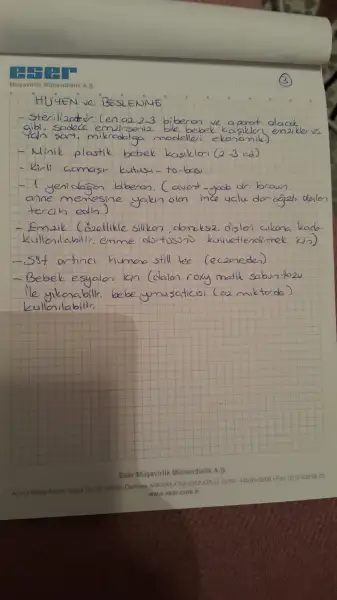 eser
Müşavirlik Mühendislik A.Ş.
3
HİJYEN ve BESLENME
- Sterilizatör (en az 2-3 biberon ve aparatı alacak
gibi, sadece emzirseniz bile bebek kaşıkları, emzikler vs
için şart, mikrodalga modelleri ekonomik)
- Minik plastik bebek kaşıkları (2-3 ad)
- Kirli çamaşır kutusu
- 1 yenidoğan biberon. (avent - yada dr brown
anne memesine yakın olan ince uçlu dar ağızlı olanları
tercih edin)
- Emzik (özellikle silikon, damaksız dişleri çıkana kadar
kullanılabilir, emme dürtüsünü kuvvetlendirmek için)
- Süt artırıcı humana still tee (eczaneden)
- Bebek eşyaları için (dalan, roxy matik sabun tozu
ile yıkanabilir. bebe yumuşatıcısı (az miktarda)
kullanılabilir.
Eser Müşavirlik Mühendislik A.Ş.